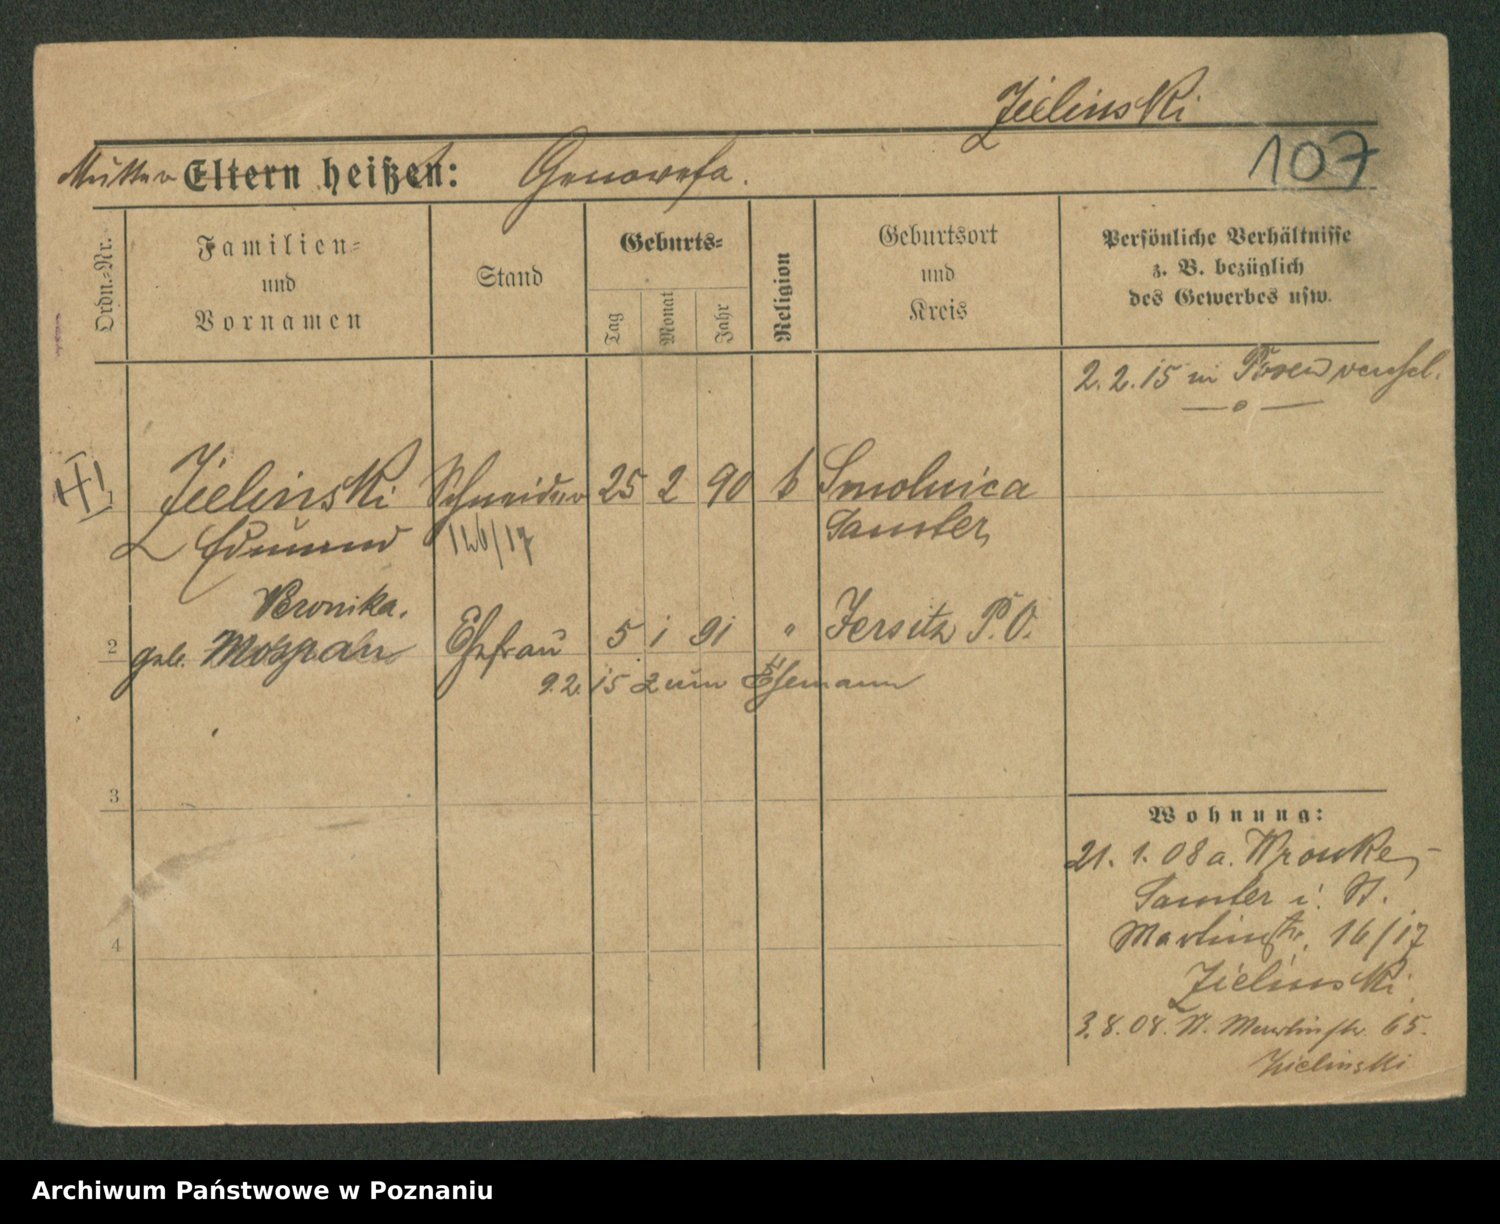 Zielinski
107
Mutter Eltern heißen: Genowefa.
Ordn.-Nr.
Familien-
und
Vornamen
Stand
Geburts-
Tag
Monat
Jahr
Religion
Geburtsort
und
Kreis
Persönliche Verhältnisse
z. B. bezüglich
des Gewerbes usw.
2.2.15 in Posen verehel.
Zielinski Schneider 25 2 90 k Smolnica
Edmund 126/17 Samter
Bronika.
2 geb. Mospan Ehefrau 5 1 91 " Jersitz P.O.
9.2.15 zum Ehemann
3
4
Wohnung:
21. 1. 08 a. Wronke,
Samter i. St.
Martinstr. 16/17
Zielinski
3.8.08. St. Martinstr. 65.
Zielinski
Archiwum Państwowe w Poznaniu